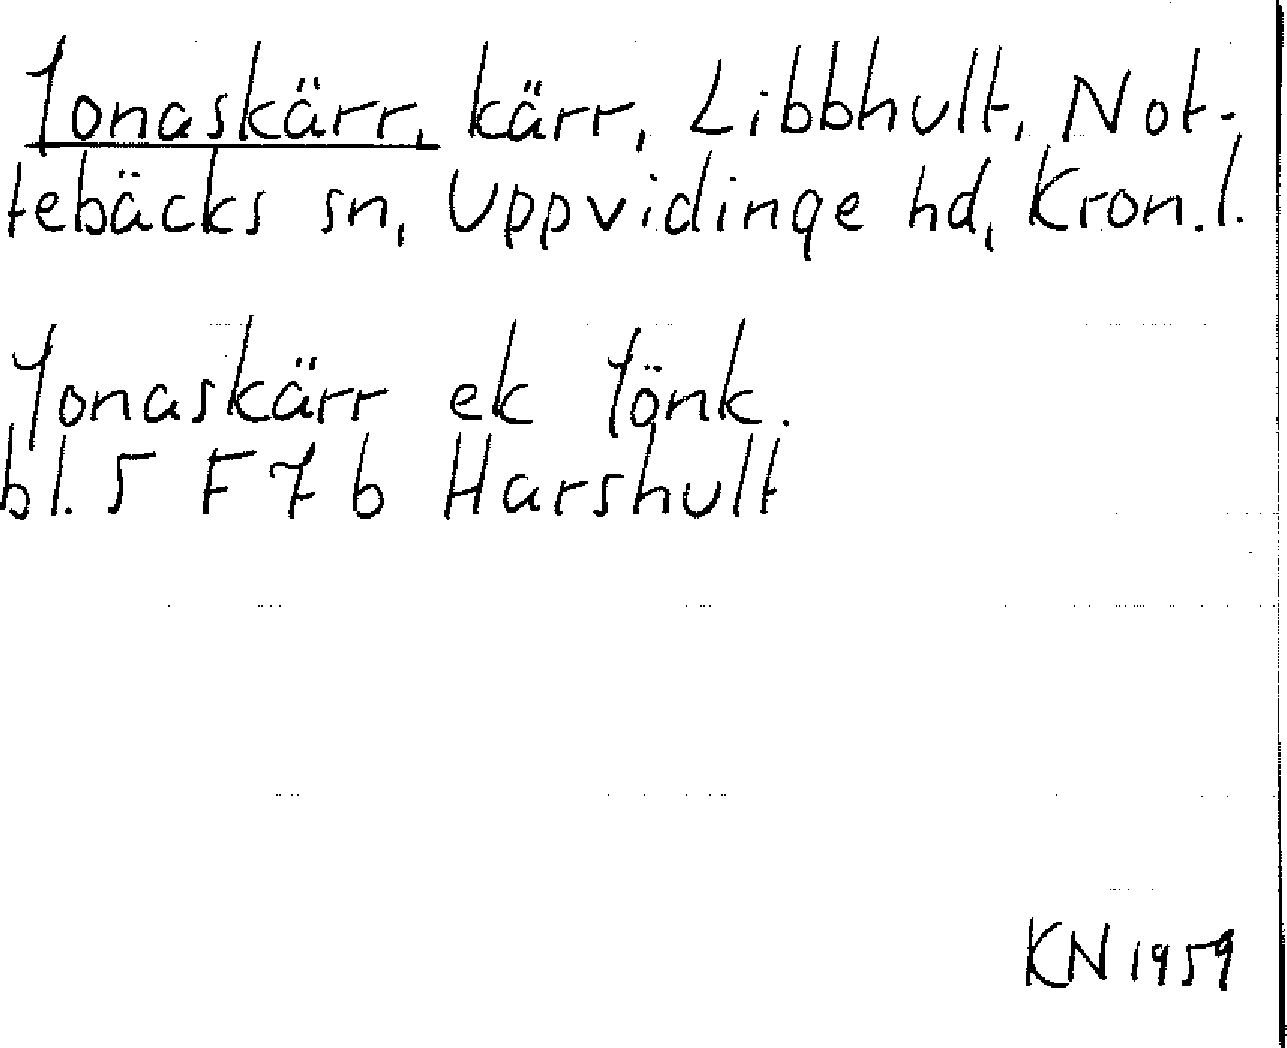 Jonaskärr, kärr, Libbhult, Not-
tebäcks sn, Uppvidinge hd, Kron.l.
Jonaskärr ek Jönk.
bl. 5 F 7 b Harshult
KN 1959